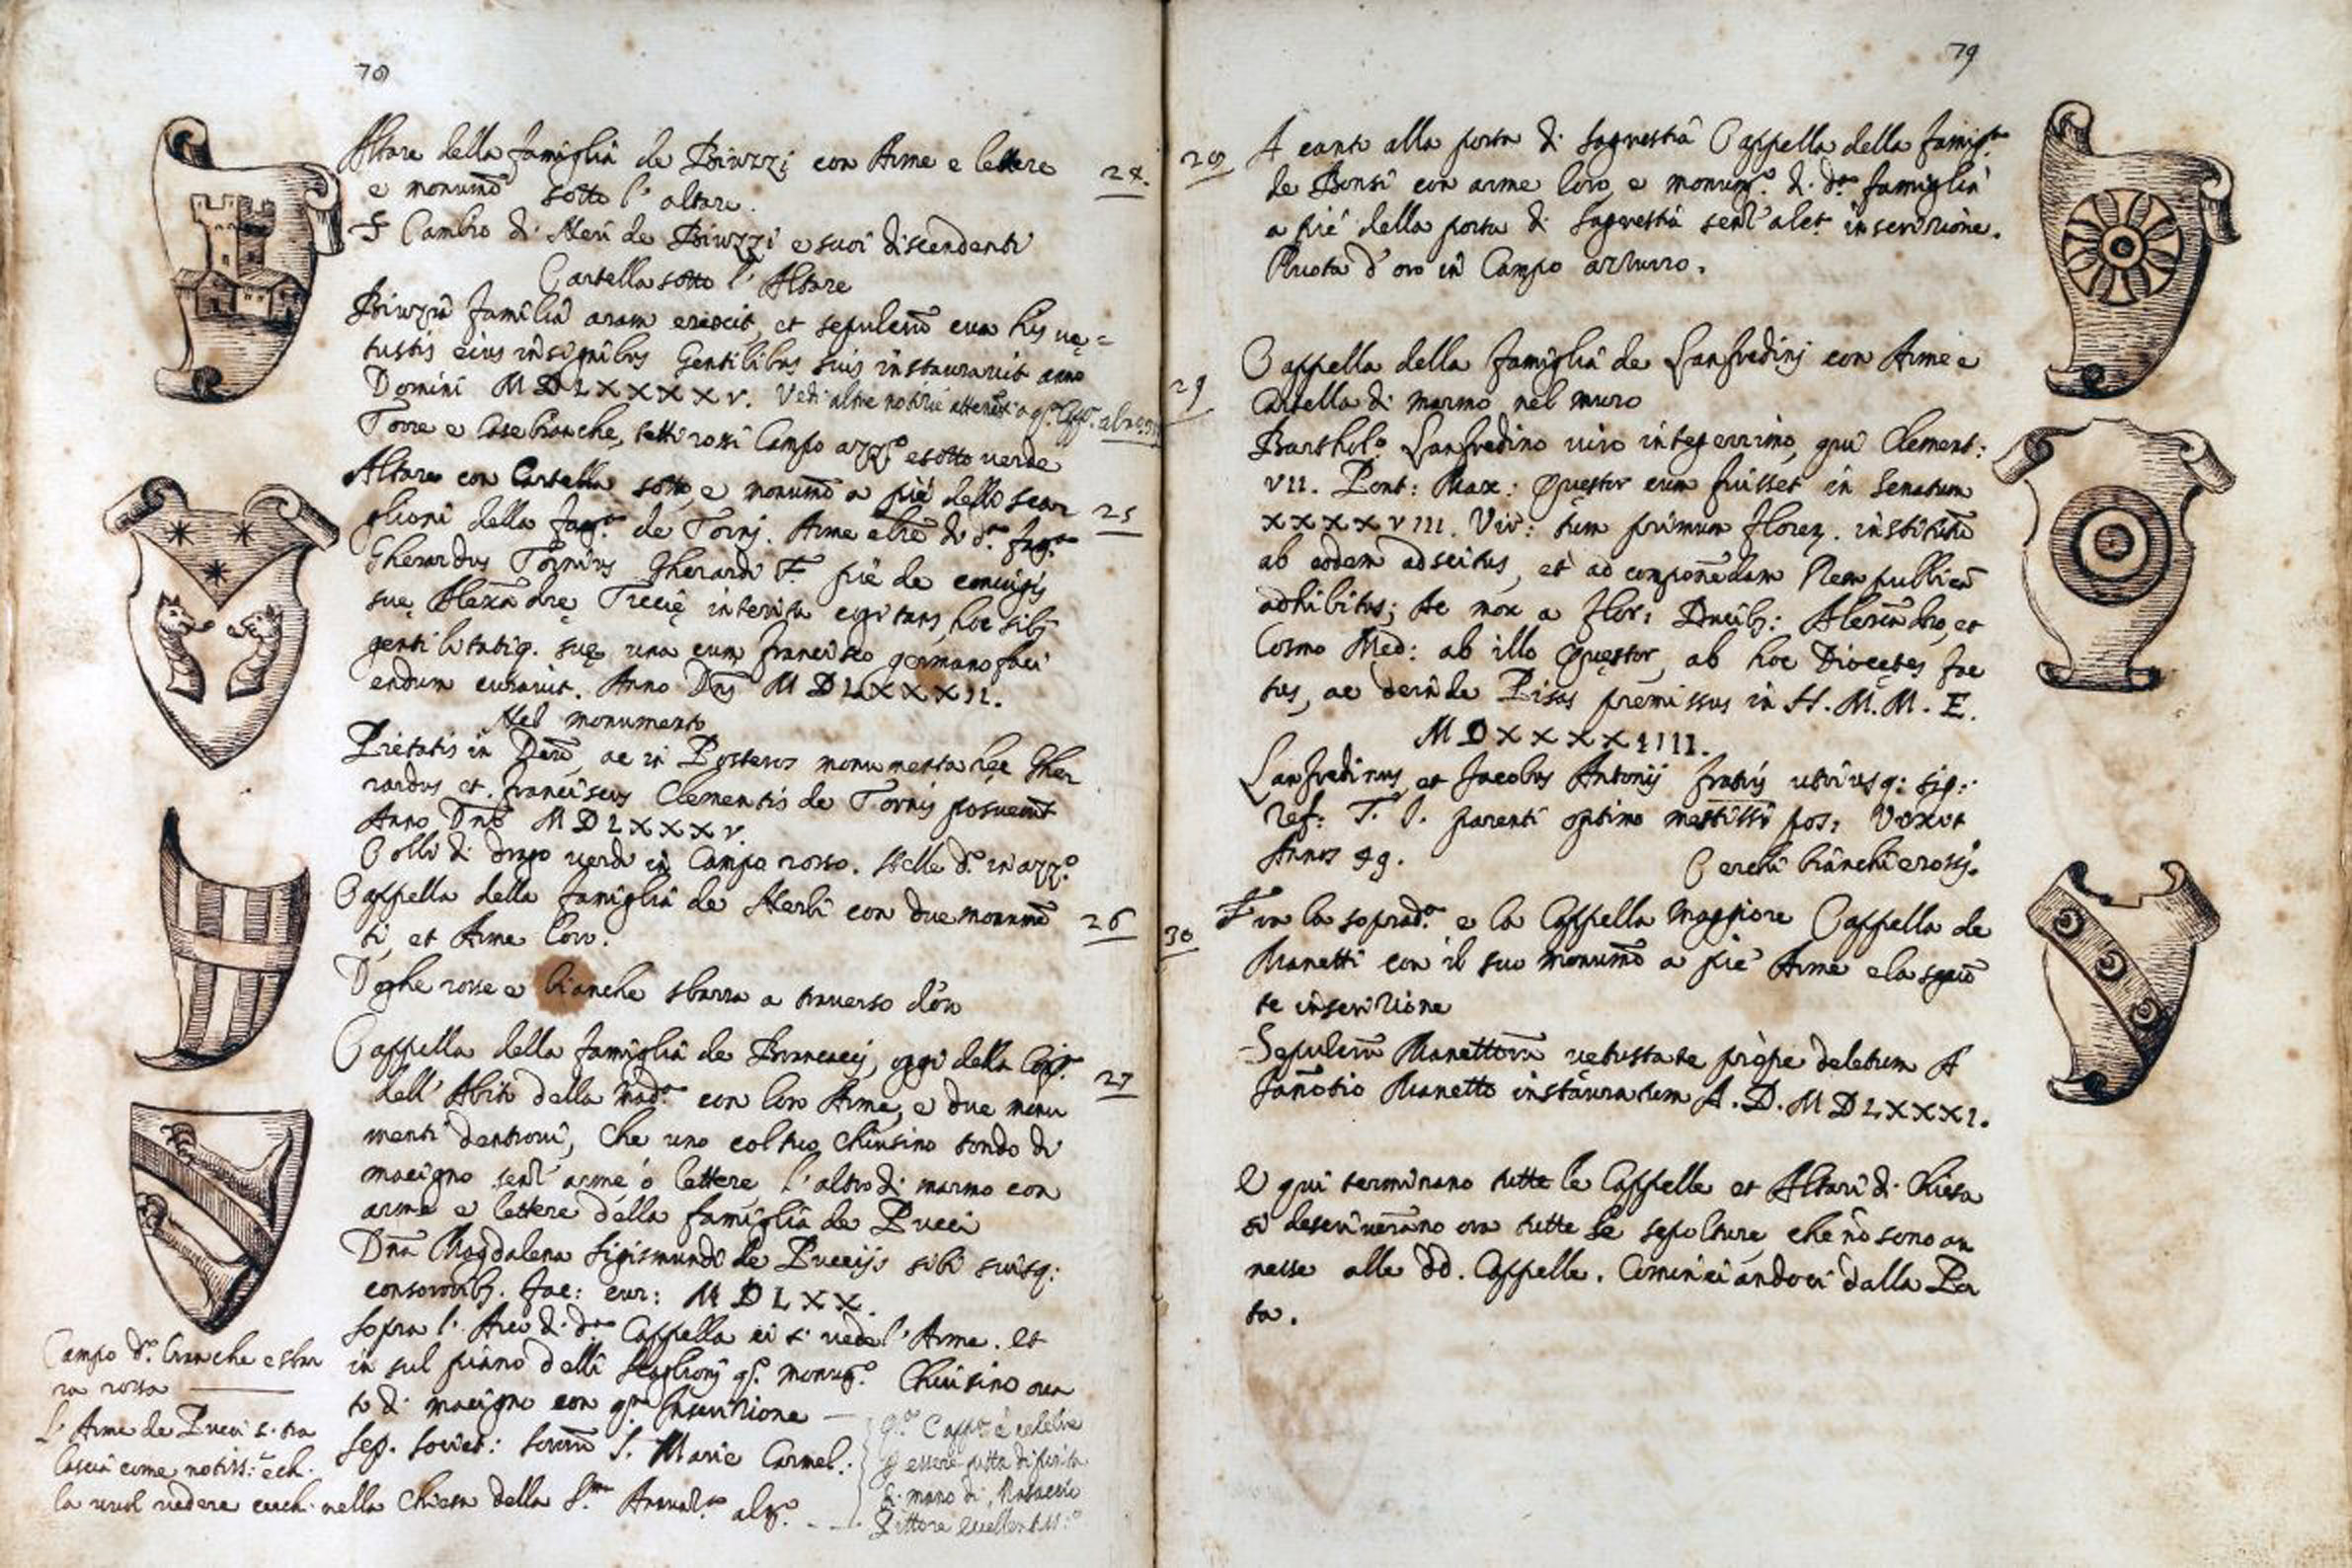 78
Altare della famiglia de Biuzzi con Arme e lettere 24.
e monumō sotto l'altare.
S Cambio di Neri de Biuzzi e suoi discendenti
Cartella sotto l'Altare
Biuzia familia aram erexit, et sepulcrū cum his ve=
tustis eius insignibus Gentilibus suis instauravit anno
Domini MDLXXXXV. Vedi altre notizie
Torre e Case bianche, tetti rossi Campo azz.º e sotto verde
Altare con Cartella sotto, e monumō a piè delli scar
glioni della fag.ª de Torni. Arme altre di d.ª fag.ª 25
Gherardus Tornius Gherardi F. piè de coniugis
suę Alexādrę Trecię interitu cogitans hoc sibi
gentilitatiq. suę una cum francisco germano faci
endum curavit. Anno Dn̄i MDLXXXII.
Nel monumento
Pietatis in Deū, ac in Posteros monumenta hęc Gher
rardus et franciscus Clementis de Tornis posuerūt
Anno Dn̄i MDLXXXV.
Colli di drago verdi in Campo rosso. Stelle d.º in azz.º
Cappella della famiglia de Nerli con due monumē 26
ti, et Arme loro.
Doghe rosse e bianche sbarra a traverso d'oro
Cappella della famiglia de Brancacci, oggi della Cōp.ª
dell'Abito della Mad.ª con loro Arme, e due monu 27
menti dentrovi, che uno col suo chiusino tondo di
macigno senz'arme ò lettere l'altro di marmo con
arme e lettere della famiglia de Pucci
Dn̄a Magdalena Sigismundi de Puccijs sibi suisq:
consororib. fac: cur: MDLXX.
Sopra l'Arco di d.ª Cappella ci si vede l'Arme. et
in sul piano delli scaglioni q.º monum.º Chiusino
to di macigno con q.ª Inscrizione
Sep. Societ: Sororū S. Marie Carmel.
Campo d.º branche e sbar
ra rossa
L'Arme de Pucci si tra
lascia come notiss: e ch.
la vuol vedere cerch. nella Chiesa della S.ma Annunz.ta
q.ª Capp.ª è celebre
p essere tutta dipinta
di mano di Masaccio
Pittore Eccellentiss:º
79
28 A canto alla porta di Sagrestia Cappella della famig.ª
de Bonsi con arme loro, e monum.º di d.ª famiglia
a piè della porta di Sagrestia senz'alcꝰ inscrizione.
Ruota d'oro in Campo azzurro.
29 Cappella della famiglia de Lanfredini con Arme e
Cartella di marmo nel muro
Barthol.º Lanfredino viro integerrimo, qui Clement:
VII. Pont: Max: Questor cum fuisset in Senatum
XXXXVIII. Vir: tum primum Floren. institutū
ab eodem adscitus, et ad componēdam Rempublicā
adhibitus; Ac mox a Flor: Ducib: Alexādro, et
Cosmo Med: ab illo Questor, ab hoc Diocetes fac
tus, ac deinde Pisas premissus in H. M. M. E.
MDXXXXIIII.
Lanfredinus, et Jacobus Antonij fratris utriusq: sig:
ref: T. J. parenti optimo mestissi pos: Vixit
Annos 49. Cerchi bianchi e rossi.
30 Fra la soprad.ª e la Cappella Maggiore Cappella de
Manetti con il suo monumō a piè Arme e la seguē
te inscrizione
Sepulcrū Manettorū vetustate propè deletum A
Janotio Manetto instauratum A. D. MDLXXXI.
E qui terminano tutte le Cappelle et Altari di Chiesa
si descriverāno ora tutte le sepolture che nō sono an
nesse alle dd. Cappelle. Cominciandoci dalla Por
ta.